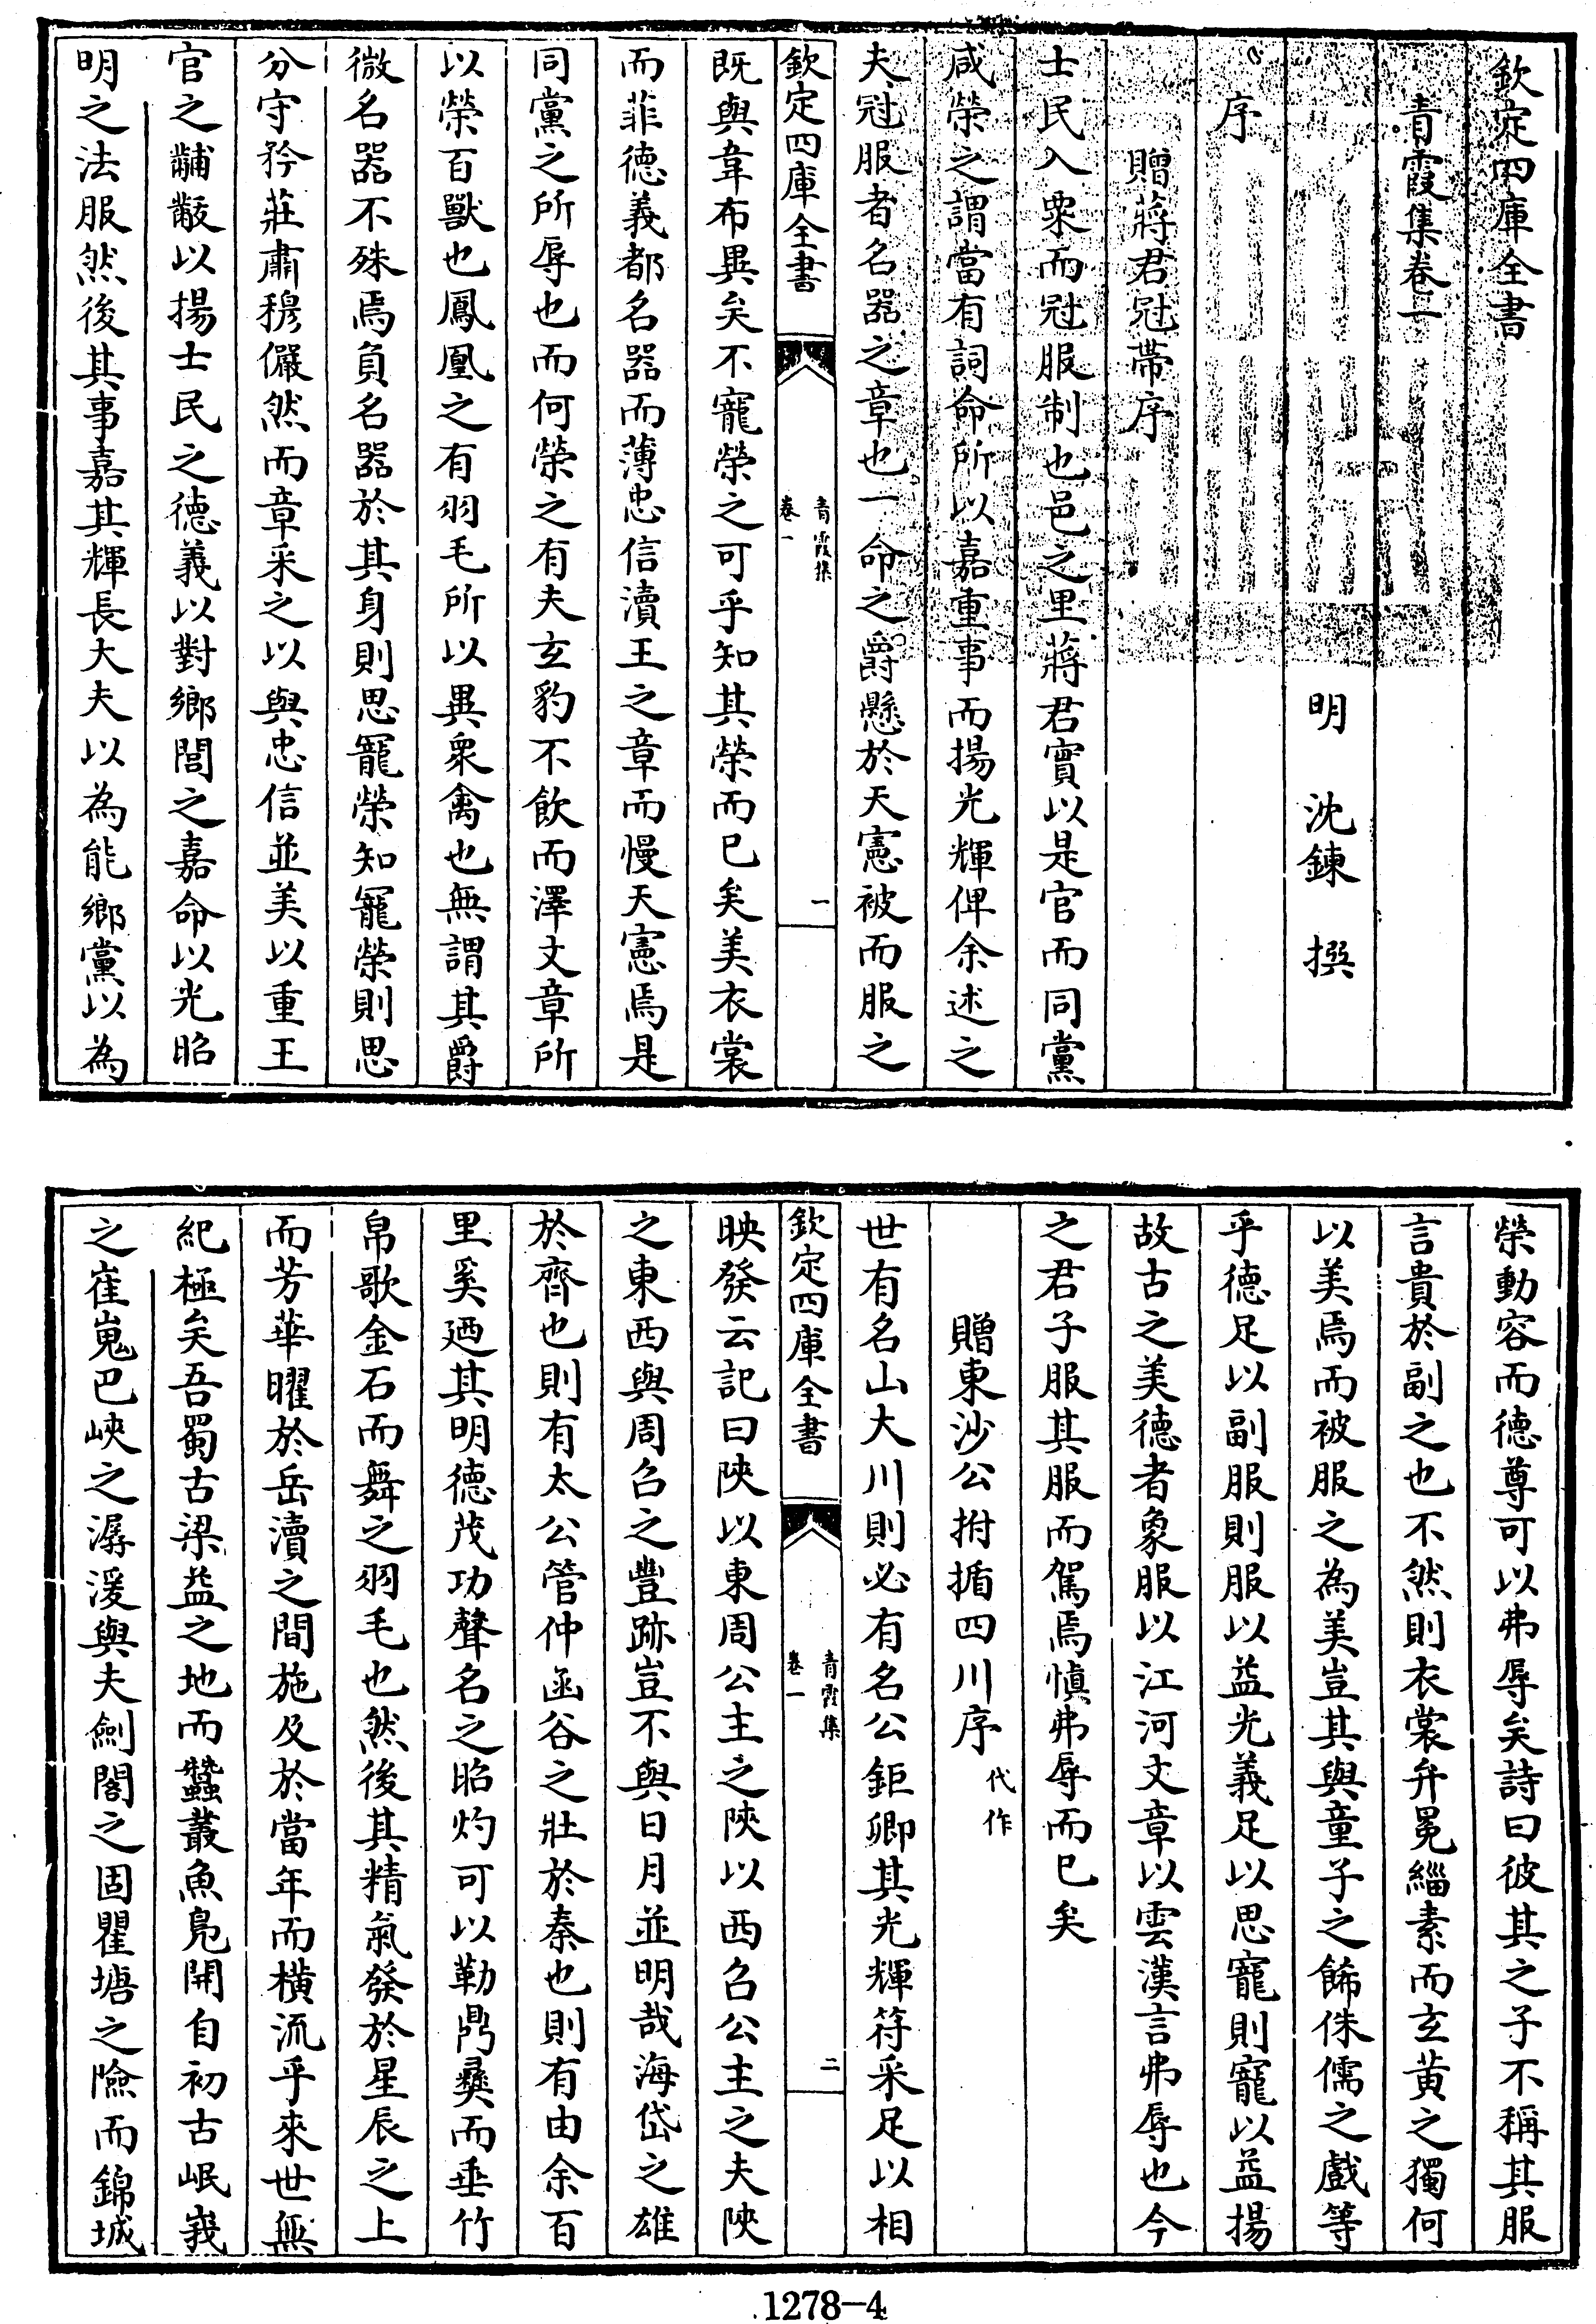 欽定四庫全書
青霞集卷一
明 沈鍊 撰
序
贈蔣君冠帯序
士民入粟而冠服制也邑之里蔣君實以是官而同黨
咸榮之謂當有詞命所以嘉重事而揚光輝俾余述之
夫冠服者名器之章也一命之爵懸於天憲被而服之
欽定四庫全書
青霞集
卷一
一
既與韋布異矣不寵榮之可乎知其榮而已矣美衣裳
而菲德義都名器而薄忠信瀆王之章而慢天憲焉是
同黨之所辱也而何榮之有夫玄豹不飲而澤文章所
以榮百獸也鳳凰之有羽毛所以異衆禽也無謂其爵
微名器不殊焉負名器於其身則思寵榮知寵榮則思
分守矜莊肅穆儼然而章采之以與忠信並美以重王
官之黼黻以揚士民之德義以對鄉閭之嘉命以光昭
明之法服然後其事嘉其輝長大夫以為能鄉黨以為
榮動容而德尊可以弗辱矣詩曰彼其之子不稱其服
言貴於副之也不然則衣裳弁冕緇素而玄黄之獨何
以美焉而被服之為美豈其與童子之飾侏儒之戲等
乎德足以副服則服以益光義足以思寵則寵以益揚
故古之美德者象服以江河文章以雲漢言弗辱也今
之君子服其服而駕焉慎弗辱而已矣
贈東沙公拊揗四川序 代作
世有名山大川則必有名公鉅卿其光輝符采足以相
欽定四庫全書
青霞集
卷一
二
映發云記曰陝以東周公主之陝以西召公主之夫陝
之東西與周召之豐跡豈不與日月並明哉海岱之雄
於齊也則有太公管仲函谷之壯於秦也則有由余百
里奚廼其明德茂功聲名之昭灼可以勒鼎彝而垂竹
帛歌金石而舞之羽毛也然後其精氣發於星辰之上
而芳華曜於岳瀆之間施及於當年而橫流乎來世無
紀極矣吾蜀古梁益之地而蠶叢魚鳧開自初古岷峩
之崔嵬巴峽之潺湲與夫劍閣之固瞿塘之險而錦城
1278-4